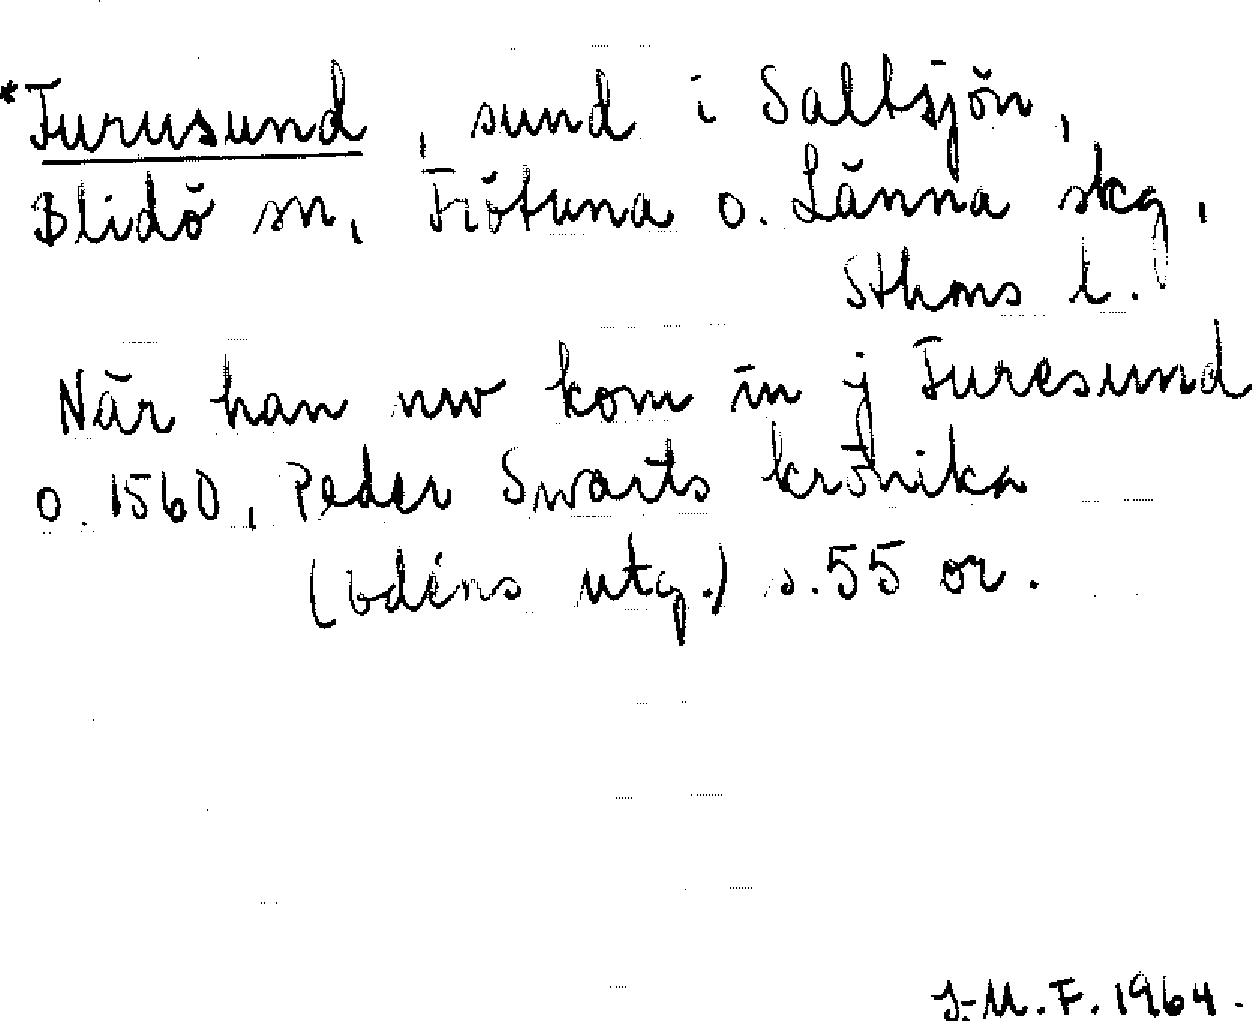 *Furusund, sund i Saltsjön,
Blidö sn, Frötuna o. Länna skg,
Sthms l.
När han nw kom in j Furesund
o. 1560, Peder Swarts krönika
(Edéns utg.) s. 55 or.
J-M.F. 1964.